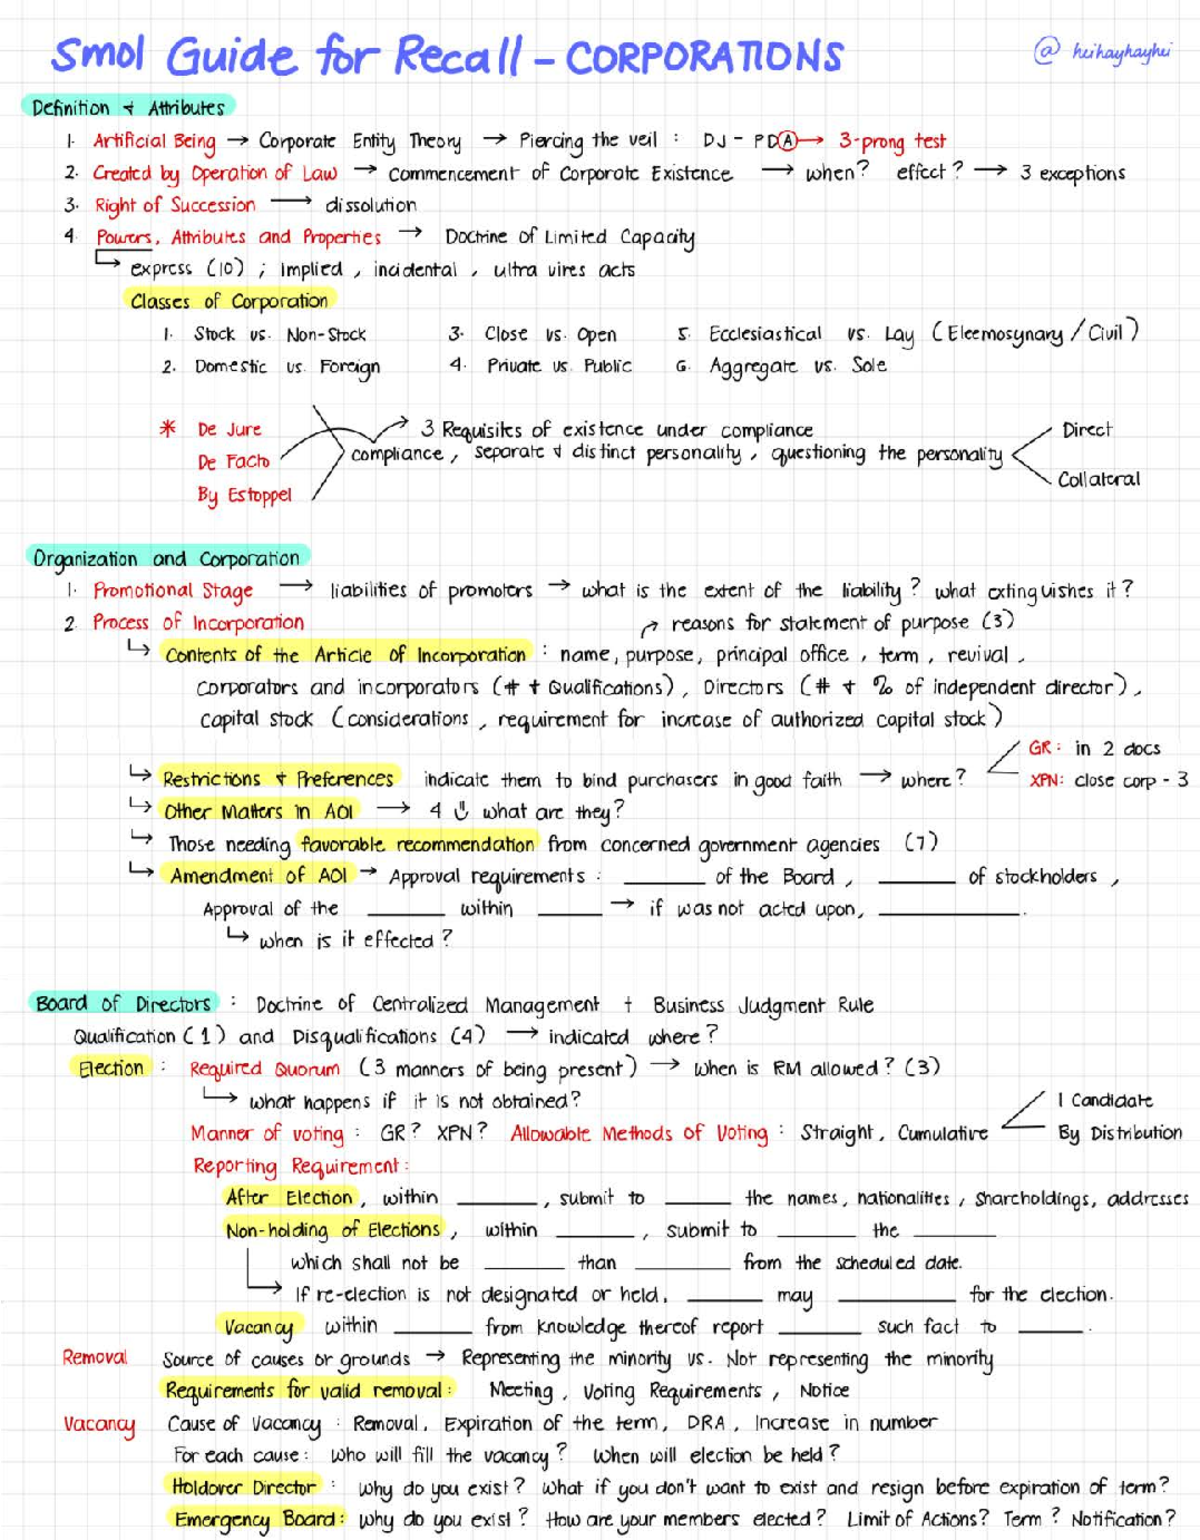 Smol Guide for Recall - CORPORATIONS @ heihayhayhei
Definition & Attributes
1. Artificial Being → Corporate Entity Theory → Piercing the veil : DJ - PDA → 3-prong test
2. Created by Operation of Law → Commencement of Corporate Existence → when? effect? → 3 exceptions
3. Right of Succession → dissolution
4. Powers, Attributes and Properties → Doctrine of Limited Capacity
↳ express (10) ; Implied , incidental , ultra vires acts
Classes of Corporation
1. Stock vs. Non-Stock 3. Close vs. Open 5. Ecclesiastical vs. Lay (Eleemosynary / Civil)
2. Domestic vs. Foreign 4. Private vs. Public 6. Aggregate vs. Sole
* De Jure → 3 Requisites of existence under compliance Direct
De Facto compliance , separate & distinct personality , questioning the personality
By Estoppel Collateral
Organization and Corporation
1. Promotional Stage → liabilities of promoters → what is the extent of the liability? what extinguishes it?
2. Process of Incorporation → reasons for statement of purpose (3)
↳ Contents of the Article of Incorporation : name, purpose, principal office , term , revival ,
Corporators and incorporators (# + Qualifications) , Directors (# + % of independent director) ,
Capital stock (considerations , requirement for increase of authorized capital stock)
GR: in 2 docs
↳ Restrictions & Preferences indicate them to bind purchasers in good faith → where? XPN: close corp - 3
↳ Other Matters in AOI → 4 what are they?
↳ Those needing favorable recommendation from concerned government agencies (7)
↳ Amendment of AOI → Approval requirements : ______ of the Board , ______ of stockholders ,
Approval of the ______ within ______ → if was not acted upon, ______.
↳ when is it effected?
Board of Directors : Doctrine of Centralized Management + Business Judgment Rule
Qualification (1) and Disqualifications (4) → indicated where?
Election : Required Quorum (3 manners of being present) → when is RM allowed? (3)
↳ what happens if it is not obtained? 1 Candidate
Manner of voting : GR? XPN? Allowable Methods of Voting : Straight, Cumulative By Distribution
Reporting Requirement:
After Election, within ______, submit to ______ the names, nationalities, shareholdings, addresses
Non-holding of Elections, within ______, submit to ______ the ______
which shall not be ______ than ______ from the scheduled date.
→ If re-election is not designated or held, ______ may ______ for the election.
Vacancy within ______ from knowledge thereof report ______ such fact to ______.
Removal Source of causes or grounds → Representing the minority vs. Not representing the minority
Requirements for valid removal: Meeting, Voting Requirements, Notice
Vacancy Cause of Vacancy : Removal, Expiration of the term, DRA, Increase in number
For each cause: Who will fill the vacancy? When will election be held?
Holdover Director : why do you exist? What if you don't want to exist and resign before expiration of term?
Emergency Board: why do you exist? How are your members elected? Limit of Actions? Term? Notification?